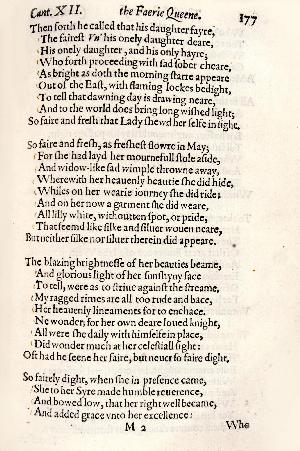 Cant. XII. the Faerie Queene. 177
Then forth he called that his daughter fayre,
The fairest Vn' his onely daughter deare,
His onely daughter, and his only hayre;
Who forth proceeding with sad sober cheare,
As bright as doth the morning starre appeare
Out of the East, with flaming lockes bedight,
To tell that dawning day is drawing neare,
And to the world does bring long wished light;
So faire and fresh that Lady shewd her selfe in sight.
So faire and fresh, as freshest flowre in May;
For she had layd her mournefull stole aside,
And widow-like sad wimple throwne away,
Wherewith her heauenly beautie she did hide,
Whiles on her wearie iourney she did ride;
And on her now a garment she did weare,
All lilly white, withoutten spot, or pride,
That seemd like silke and siluer wouen neare,
But neither silke nor siluer therein did appeare.
The blazing brightnesse of her beauties beame,
And glorious light of her sunshyny face
To tell, were as to striue against the streame,
My ragged rimes are all too rude and bace,
Her heauenly lineaments for to enchace.
Ne wonder; for her own deare loued knight,
All were she daily with himselfe in place,
Did wonder much at her celestiall sight:
Oft had he seene her faire, but neuer so faire dight.
So fairely dight, when she in presence came,
She to her Syre made humble reuerence,
And bowed low, that her right well became,
And added grace vnto her excellence:
M 2 Who